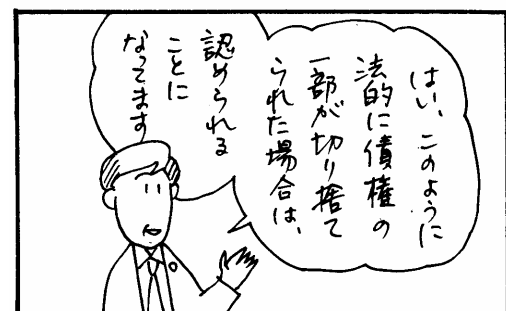 はい、このように
法的に債権の
一部が切り捨て
られた場合は、
認められる
ことに
なってます